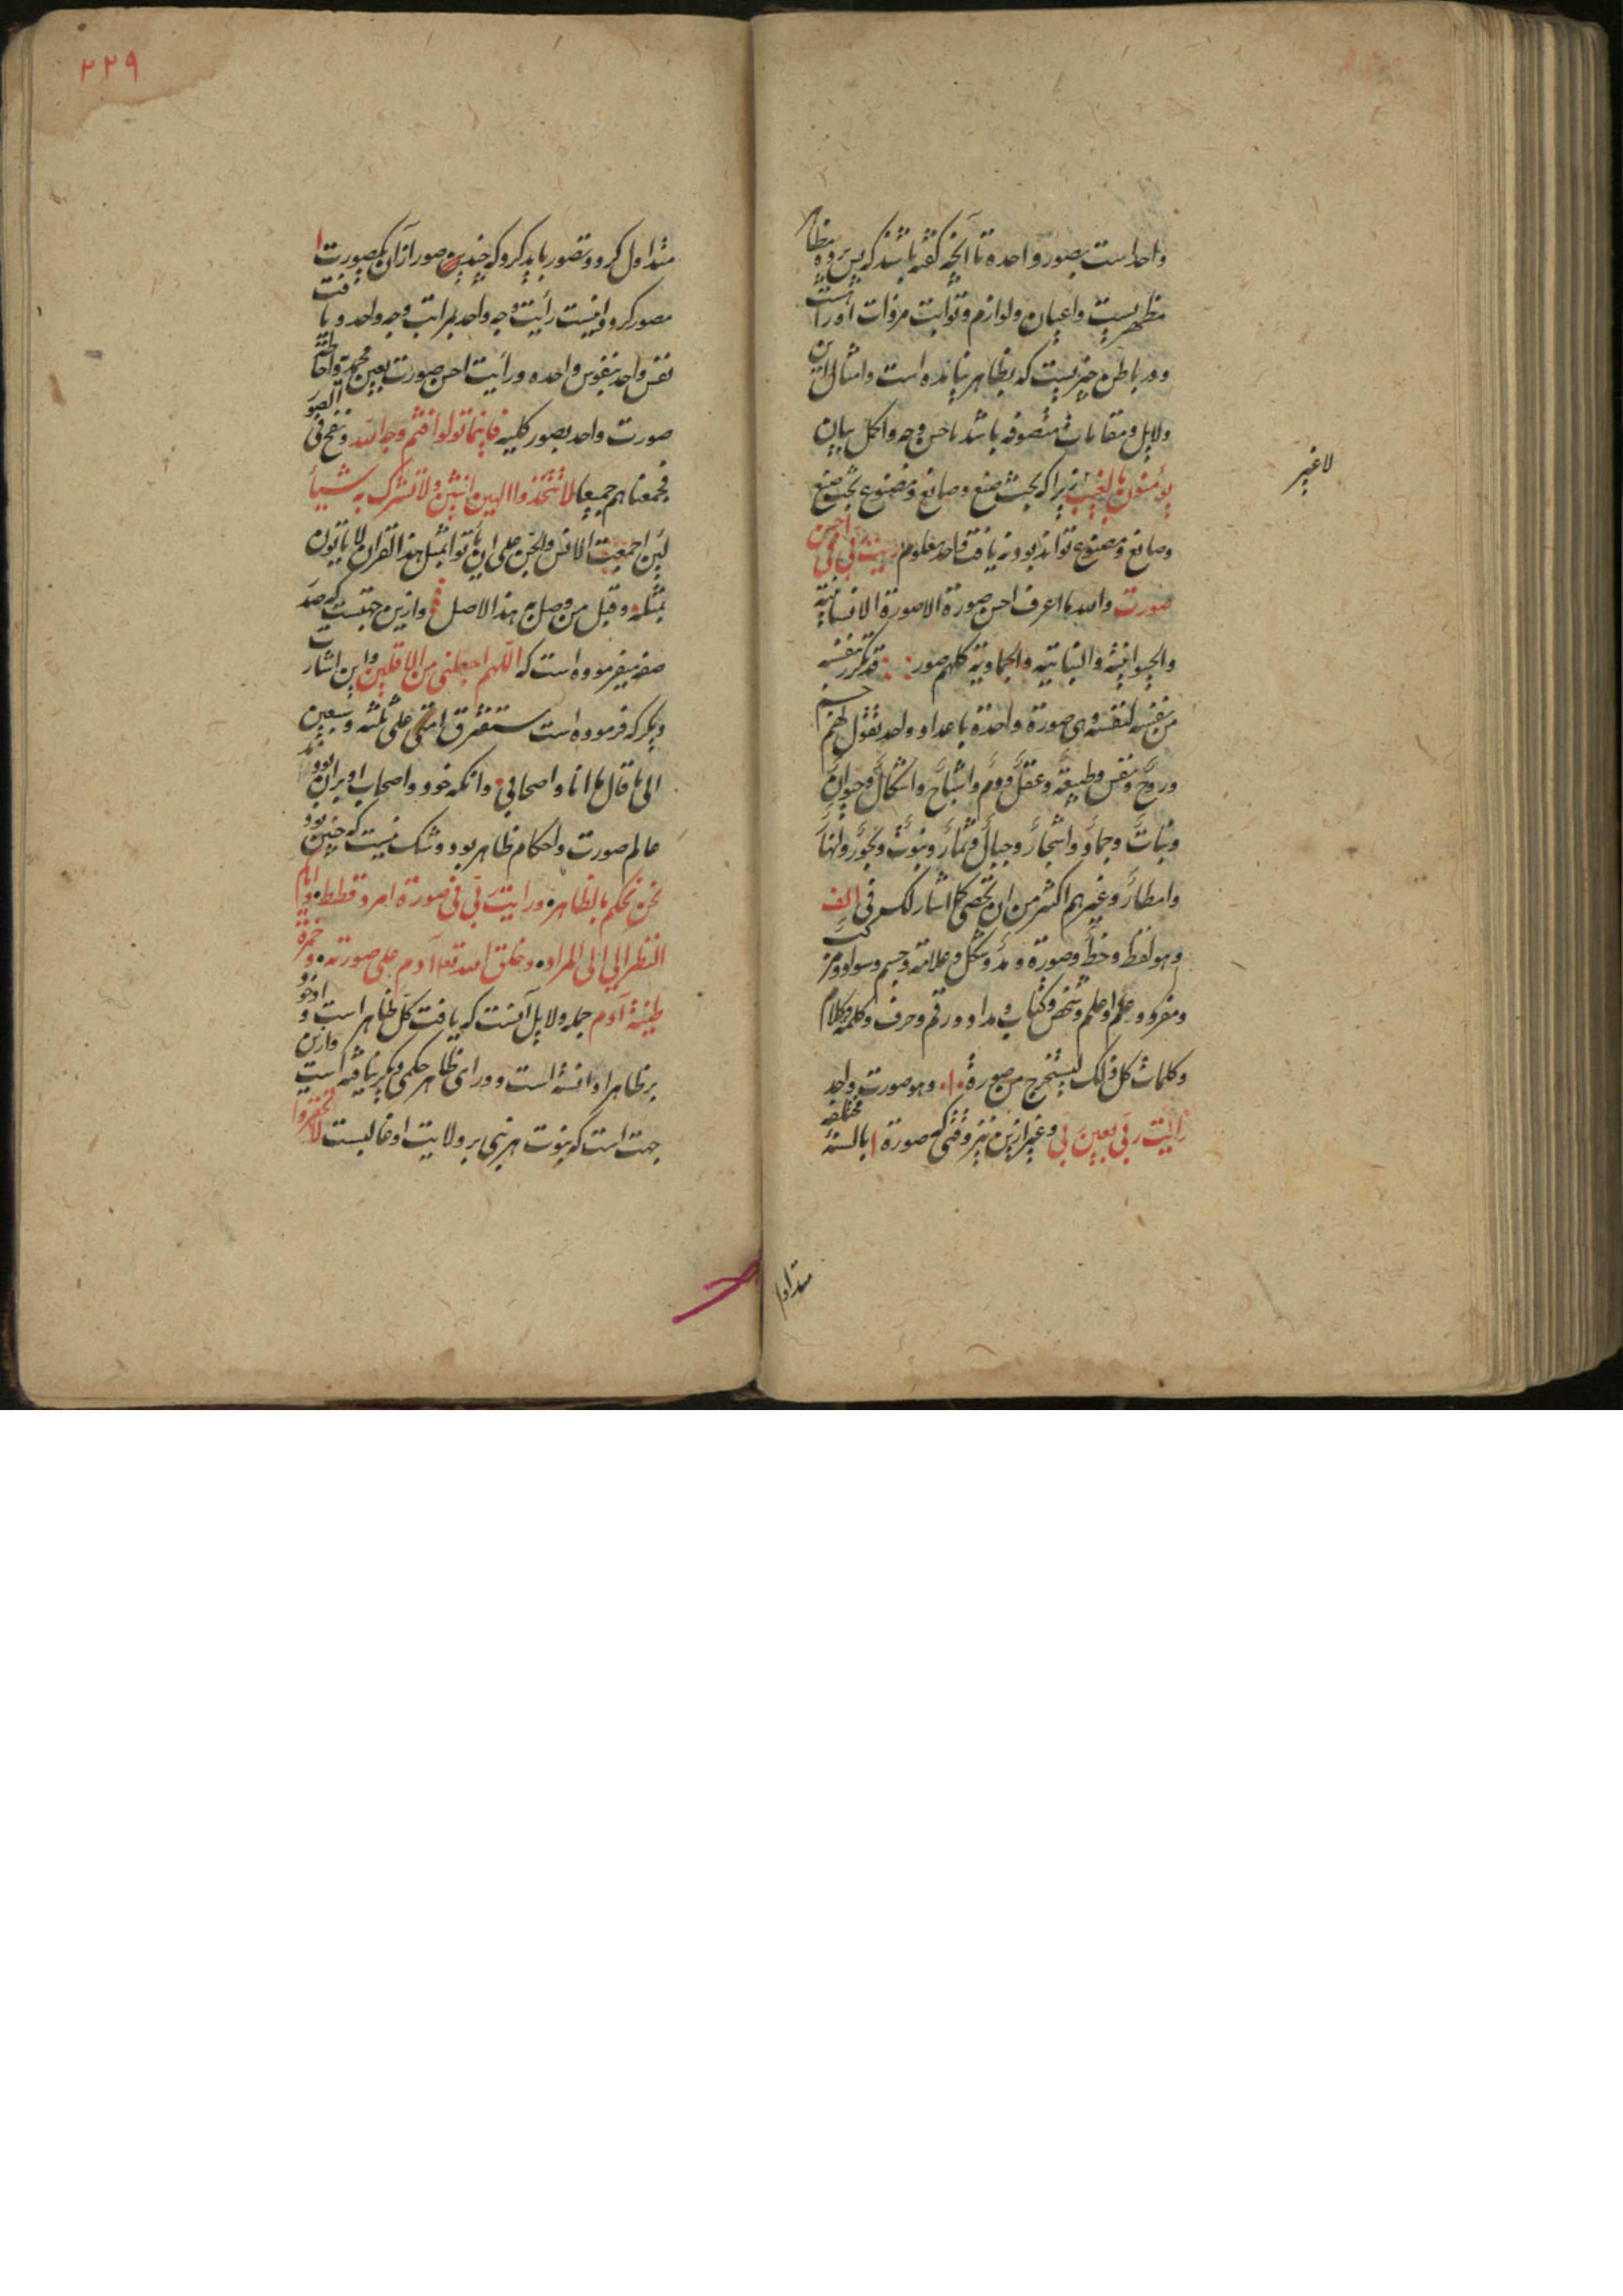 واحداست بصور واحده تا آنچه گفته باشد که پس پرده مظاهر
مظهریست واعیان ولوازم وتوابت مر ذات اورا است
ودر باطن چیزیست که بظاهر نیامده است وامثال این
دلایل ومقامات متصوفه باشد باحسن وجه واکمل بیان
لا غیر
یؤمنون بالغیب زیرا که بحث صنع وصانع ومصنوع بحث صنع
وصانع ومصنوع تواند بود نه یافت واحد معلوم رایت ربی فی احسن
صورت والله ما اعرف احسن صورة الا صورة الانسانیة
والحیوانیة والنباتیة والجمادیة کلهم صور قد تکرر نفسه
من نفسه لنفسه وهی صورة واحدة باعداد واحد نقول لهم جسم
وروح ونفس وطبیعة وعقل ووهم واشباح واشکال وحیوان
ونبات وجماد واشجار وجبال وثمار وبیوت وبحور وانهار
وامطار وغیرهم اکثر من ان تحصی کما اشار لک فی الف
وهو لفظ وخط وصورة ومد وشکل وعلامة وجسم وسواد ورمز
ومفرد وعلم واعلم وشخص وکتاب ومداد ورقم وحرف وکلمة وکلام
وکلمات کل ذلک لیستخرج من صورة ا وهو صورت واحد
رأیت ربی بعین ربی وغیر ازین نیز وقتی که صورة ا بالسنة مختلفه
متداول
۲۲۹
متداول کرد وتصور باید کرد که چندین صور از آن یکصورت ا
مصور کرد واینست رأیت وجه واحد بمراتب وجه واحد ویافت
نفس واحد بنفوس واحده ورأیت احسن صورت بعین محمد واحاطة
صورت واحد بصور کلیه فاینما تولوا فثم وجه الله ونفخ فی الصور
فجمعناهم جمیعا لا تتخذوا الهین اثنین ولا تشرک به شیأ
لئن اجتمعت الانس والجن علی ان یأتوا بمثل هذا القران لا یأتون
بمثله وقبل من وصل به هذا الاصل وازین جهتست که حضرت
صفی میفرموده است که اللهم اجعلنی من الاقلین واین اشارت
دیگر که فرموده است ستفترق امتی علی ثلثه وسبعین
الی ما قال ما انا واصحابی وآنکه خود واصحاب او بران بودند
عالم صورت واحکام ظاهر بود وشک نیست که چنین بود
نحن نحکم بالظاهر ورایت ربی فی صورة امرد قطط وایام
النظر الی المراد وخلق الله تعا آدم علی صورته وخمرة
طینة آدم جمله دلایل آنست که یافت کل ظاهر است و او خود
بر ظاهر او دانسته است وورای ظاهر حکمی دیگر نیافته است وازین
جهت است که نبوت هر نبی بر ولایت او غالبست لا تحقروا